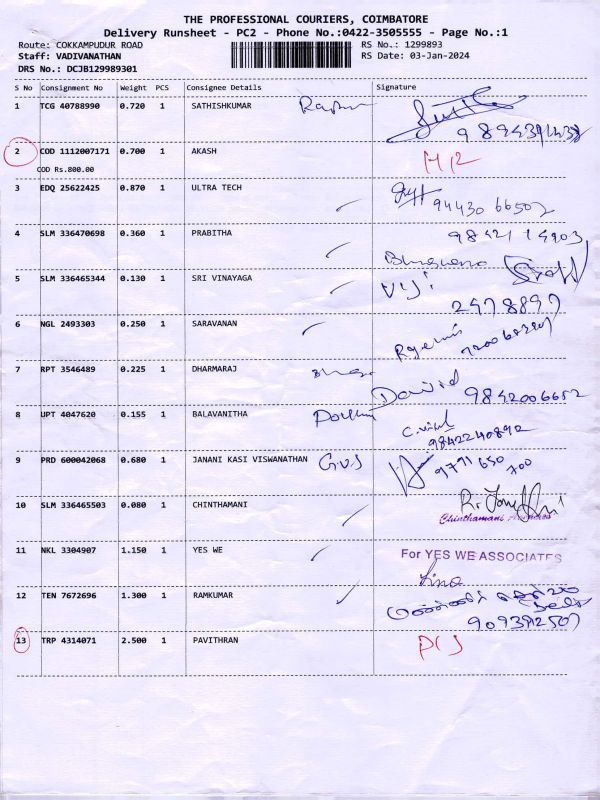 THE PROFESSIONAL COURIERS, COIMBATORE
Delivery Runsheet - PC2 - Phone No.:0422-3505555 - Page No.:1
Route: COKKAMPUDUR ROAD RS No.: 1299893
Staff: VADIVANATHAN RS Date: 03-Jan-2024
DRS No.: DCJB129989301
S No Consignment No Weight PCS Consignee Details Signature
1 TCG 40788990 0.720 1 SATHISHKUMAR
2 COD 1112007171 0.700 1 AKASH
COD Rs.800.00
3 EDQ 25622425 0.870 1 ULTRA TECH 94430 66502
4 SLM 336470698 0.360 1 PRABITHA
5 SLM 336465344 0.130 1 SRI VINAYAGA Viji
2478897
6 NGL 2493303 0.250 1 SARAVANAN
7 RPT 3546489 0.225 1 DHARMARAJ David 9842006652
8 UPT 4047620 0.155 1 BALAVANITHA
9842240892
9 PRD 600042068 0.680 1 JANANI KASI VISWANATHAN 9791 650
700
10 SLM 336465503 0.080 1 CHINTHAMANI
Chinthamani
11 NKL 3304907 1.150 1 YES WE For YES WE ASSOCIATES
12 TEN 7672696 1.300 1 RAMKUMAR
13 TRP 4314071 2.500 1 PAVITHRAN